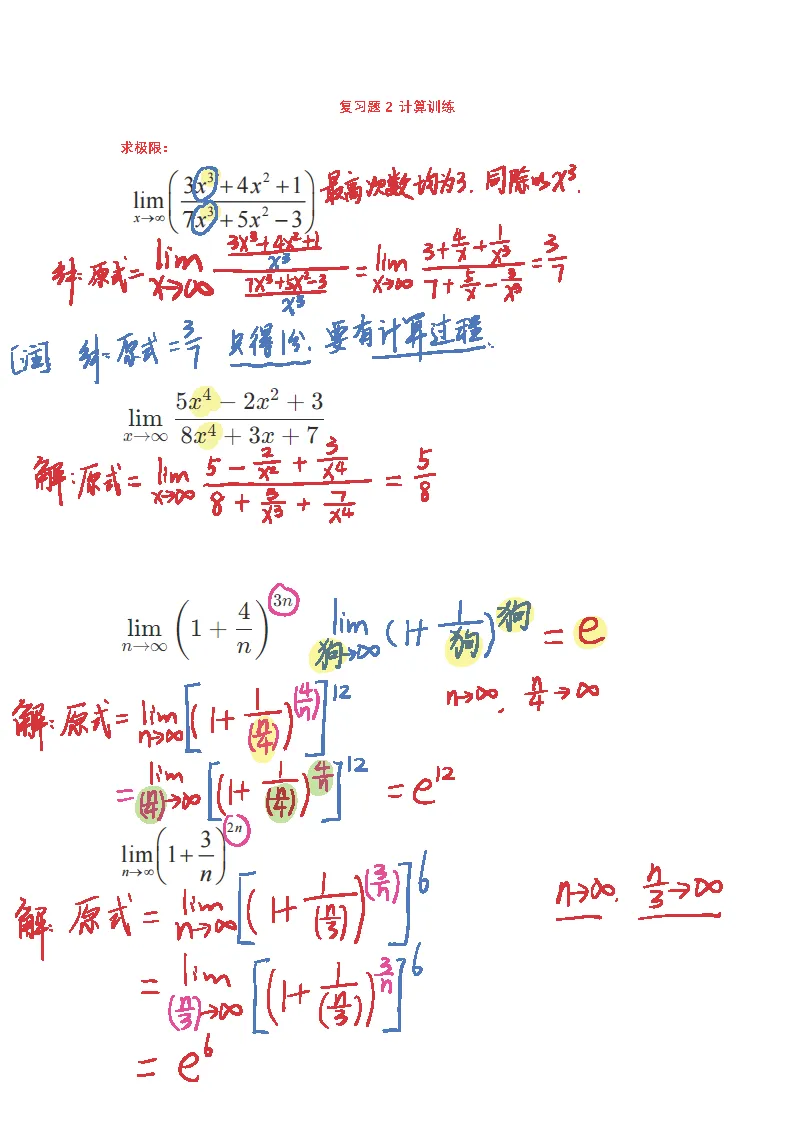 复习题 2 计算训练
求极限：
lim x→∞ ( (3x³+4x²+1) / (7x³+5x²−3) ) 最高次数均为3，同除以x³.
解：原式 = lim x→∞ ((3x³+4x²+1)/x³) / ((7x³+5x²−3)/x³) = lim x→∞ (3+4/x+1/x³) / (7+5/x−3/x³) = 3/7
[注] 解：原式 = 3/7 只得1分，要有计算过程.
lim x→∞ (5x⁴ − 2x² + 3) / (8x⁴ + 3x + 7)
解：原式 = lim x→∞ (5 − 2/x² + 3/x⁴) / (8 + 3/x³ + 7/x⁴) = 5/8
lim n→∞ (1 + 4/n)^(3n) lim 狗→∞ (1+ 1/狗)^狗 = e
n→∞, n/4→∞
解：原式 = lim n→∞ [(1+ 1/(n/4))^(4/n)]^12
= lim (n/4)→∞ [(1+ 1/(n/4))^(4/n)]^12 = e^12
lim n→∞ (1+ 3/n)^(2n)
解：原式 = lim n→∞ [(1+ 1/(n/3))^(3/n)]^6 n→∞, n/3→∞
= lim (n/3)→∞ [(1+ 1/(n/3))^(3/n)]^6
= e^6